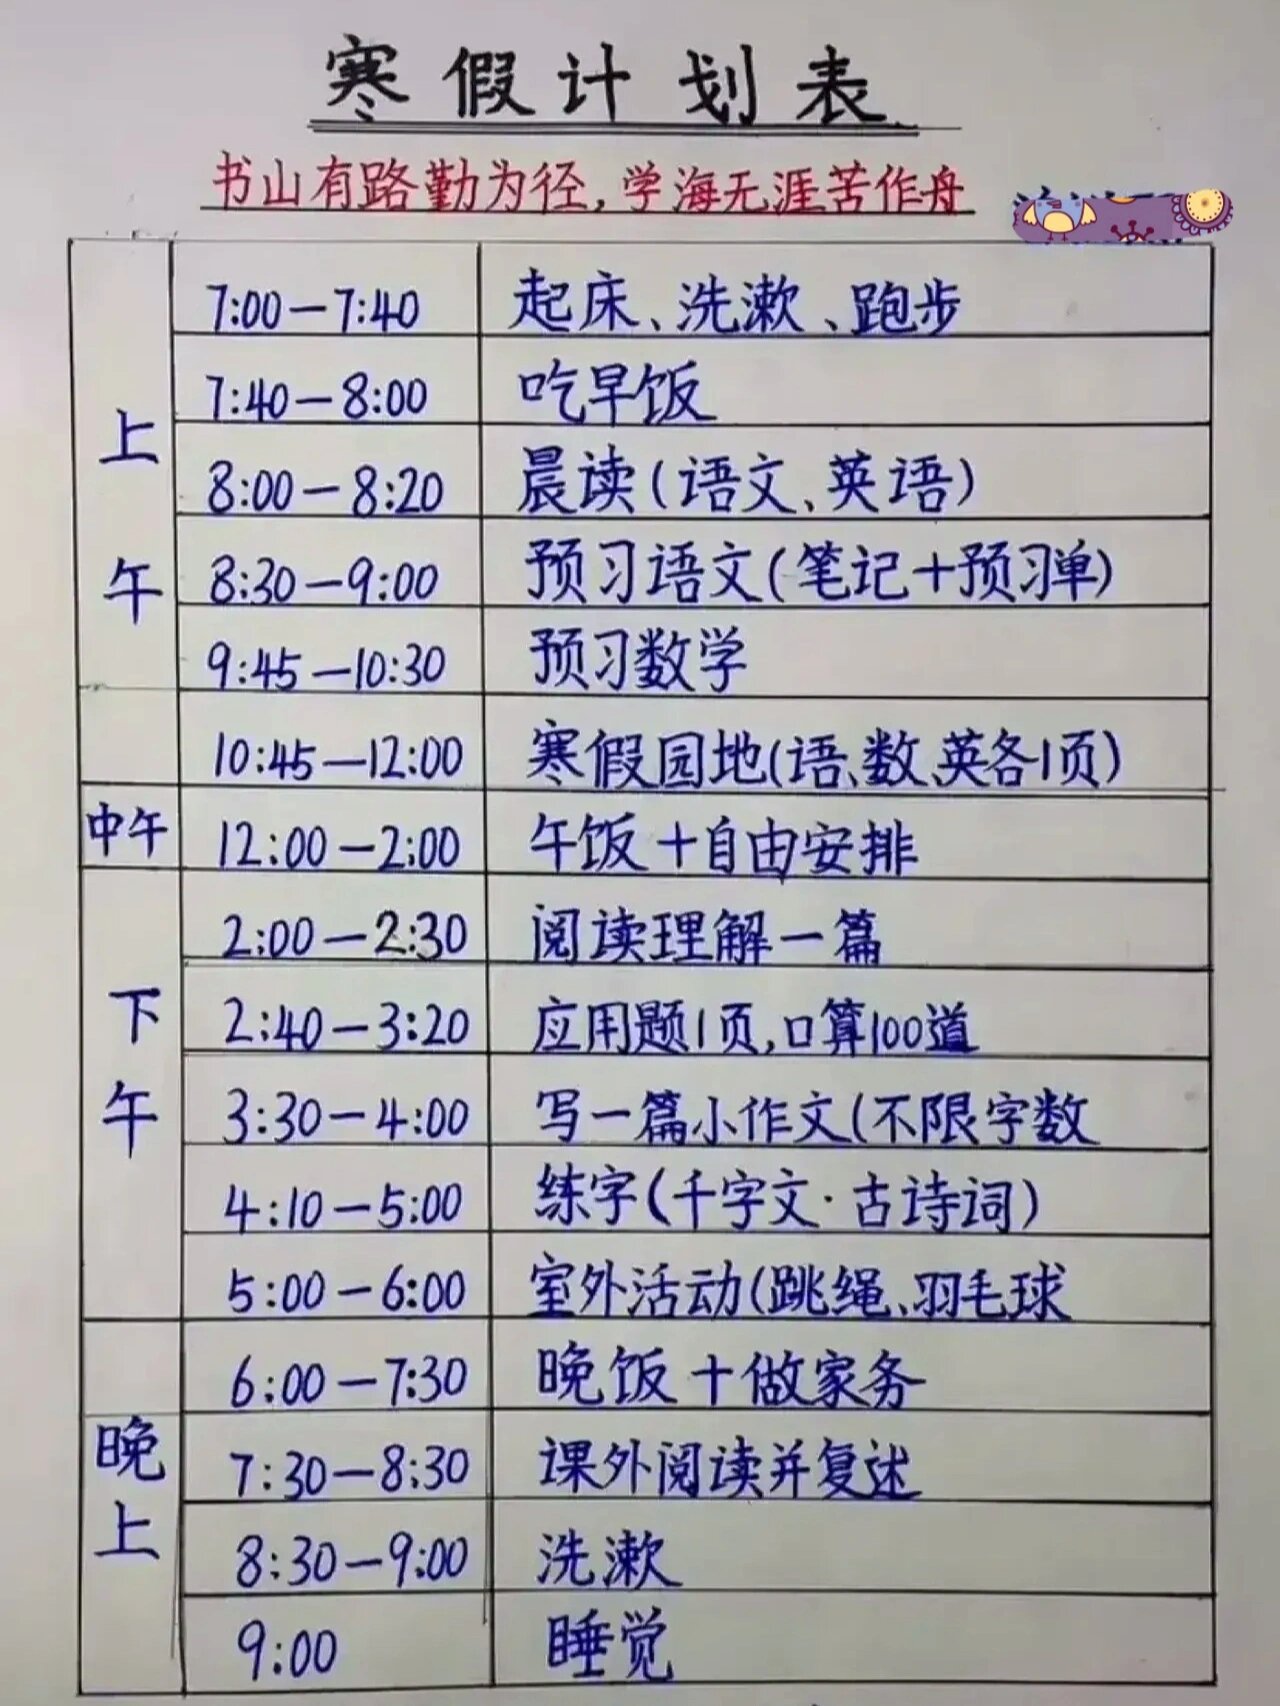 寒假计划表
书山有路勤为径,学海无涯苦作舟
上午
7:00—7:40 起床、洗漱、跑步
7:40—8:00 吃早饭
8:00—8:20 晨读(语文、英语)
8:30—9:00 预习语文(笔记+预习单)
9:45—10:30 预习数学
10:45—12:00 寒假园地(语、数、英各1页)
中午 12:00—2:00 午饭+自由安排
下午
2:00—2:30 阅读理解一篇
2:40—3:20 应用题1页,口算100道
3:30—4:00 写一篇小作文(不限字数
4:10—5:00 练字(千字文·古诗词)
5:00—6:00 室外活动(跳绳、羽毛球
晚上
6:00—7:30 晚饭+做家务
7:30—8:30 课外阅读并复述
8:30—9:00 洗漱
9:00 睡觉